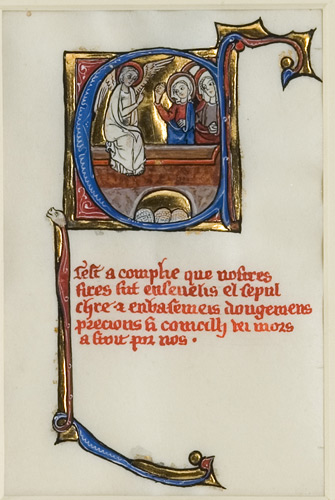 Cest a complie que nostres
sires fut enseuelis el sepul
chre ⁊ enbasemeis dongemens
precious si com cilh ki mors
astoit por nos ·